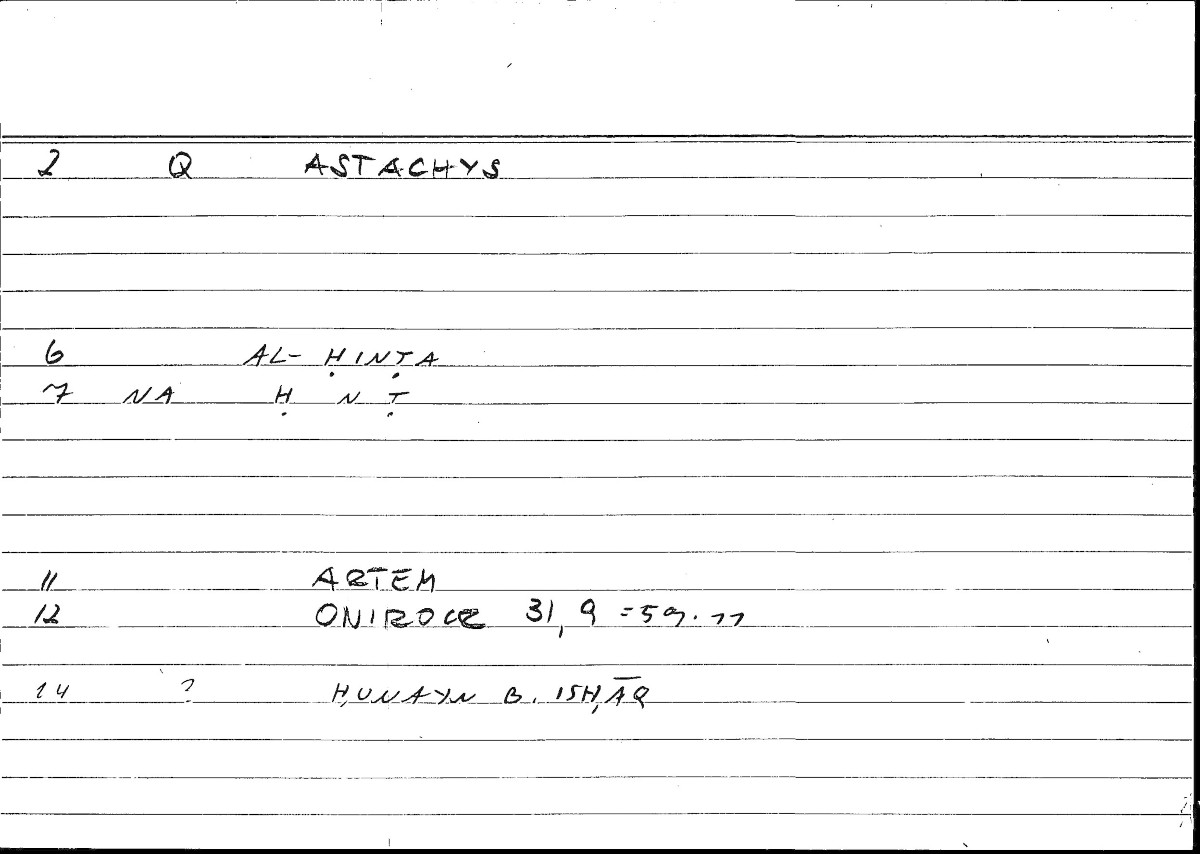 2 Q ASTACHYS
6 AL-ḤINṬA
7 NA Ḥ N Ṭ
11 ARTEM
12 ONIROCR 31,9 =59.11
14 ? ḤUNAYN B. ISḤĀQ